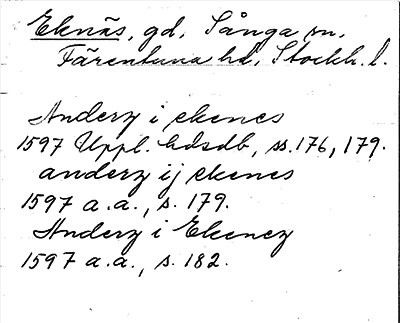 Eknäs, gd, Sånga sn,
Färentuna hd, Stockh. l.
Anderz i ekenes
1597 Uppl. hdsdb, ss. 176, 179.
anderz ij ekenes
1597 a.a., s. 179.
Anderz i Ekenez
1597 a.a., s. 182.